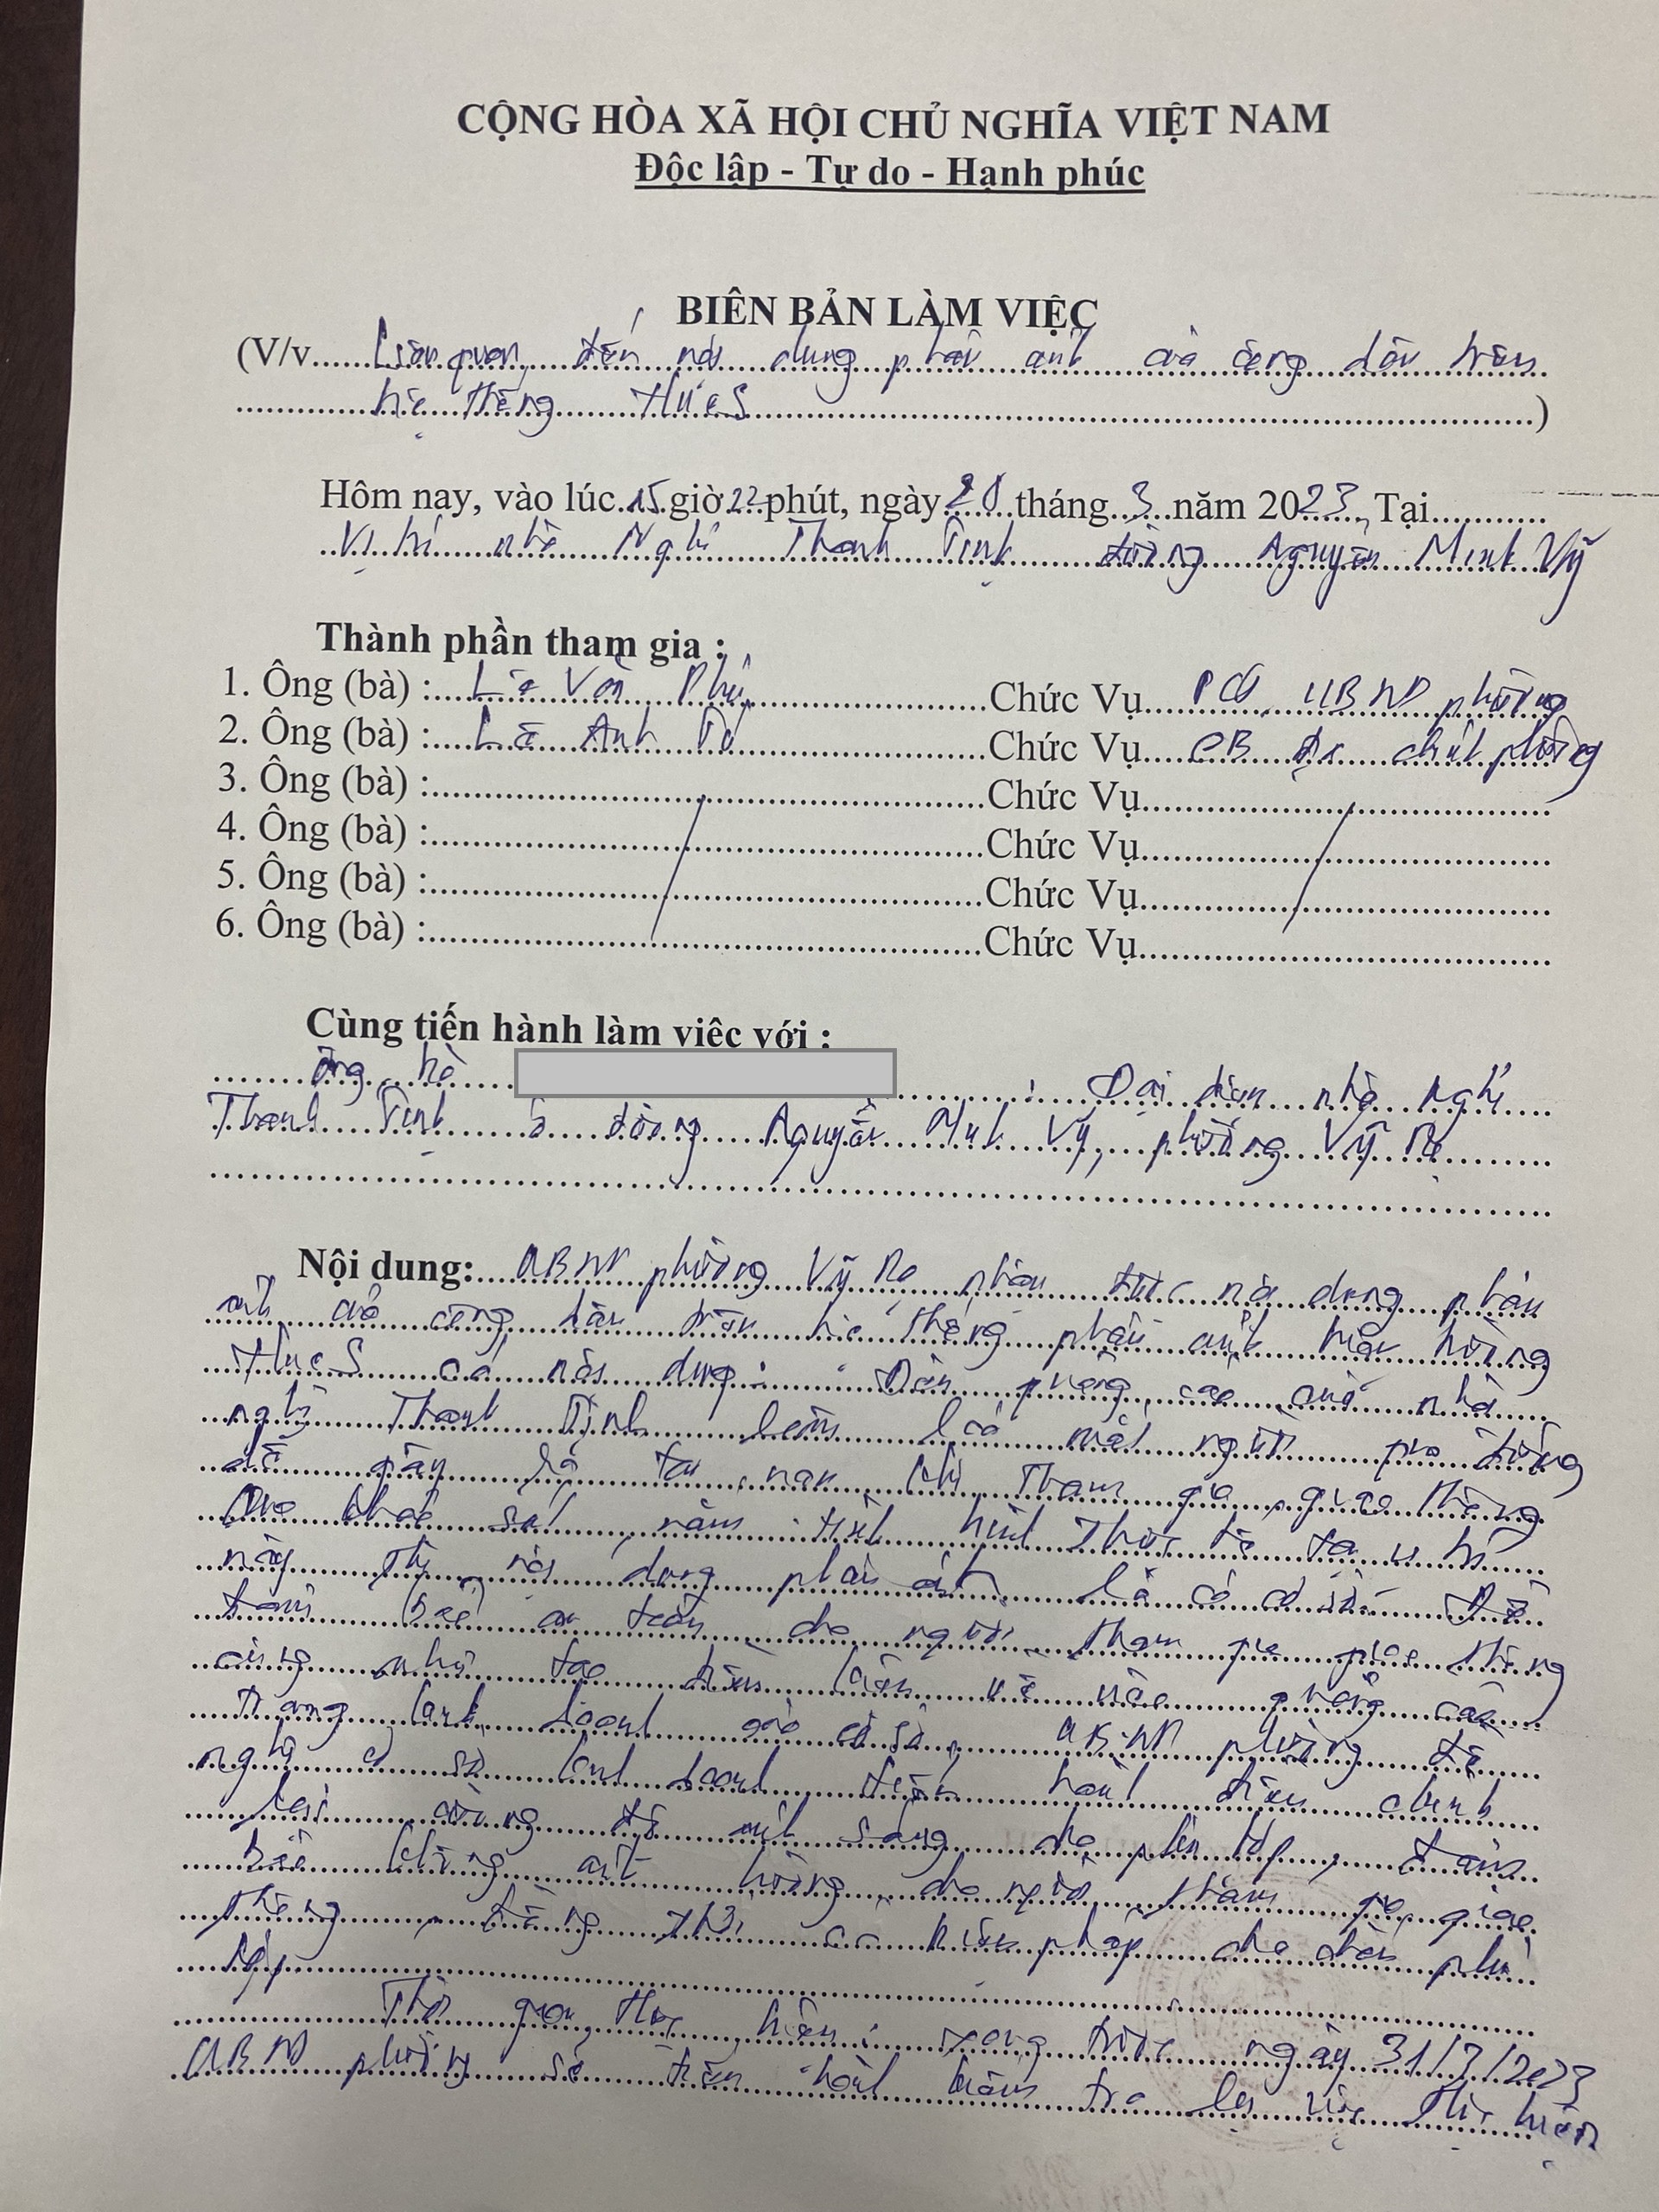 CỘNG HÒA XÃ HỘI CHỦ NGHĨA VIỆT NAM
Độc lập - Tự do - Hạnh phúc
BIÊN BẢN LÀM VIỆC
(V/v......Liên quan đến nội dung phản ánh của công dân trên
hệ thống HueS)
Hôm nay, vào lúc 15 giờ 22 phút, ngày 20 tháng 3 năm 2023, Tại...........
Vị trí nhà Nghỉ Thanh Tịnh đường Nguyễn Minh Vỹ
Thành phần tham gia :
1. Ông (bà) : Lê Văn Phú Chức Vụ PCT UBND phường
2. Ông (bà) : Lê Anh Tú Chức Vụ CB Địa chính phường
3. Ông (bà) :..........Chức Vụ..........
4. Ông (bà) :..........Chức Vụ..........
5. Ông (bà) :..........Chức Vụ..........
6. Ông (bà) :..........Chức Vụ..........
Cùng tiến hành làm việc với :
Ông bà : Đại diện nhà Nghỉ
Thanh Tịnh ở đường Nguyễn Minh Vỹ, phường Vỹ Dạ
Nội dung: UBND phường Vỹ Dạ nhận được nội dung phản
ánh của công dân trên hệ thống phản ánh hiện trường
HueS có nội dung: Đèn quảng cáo của nhà
nghỉ Thanh Tịnh làm loá mắt người qua đường
dễ gây ra tai nạn khi tham gia giao thông
Qua khảo sát, nắm tình hình thực tế tại vị trí
này thì nội dung phản ánh là có cơ sở. Để
đảm bảo an toàn cho người tham gia giao thông
cũng như tạo điều kiện về việc quảng cáo
trong kinh doanh của cơ sở, UBND phường đề
nghị cơ sở kinh doanh tiến hành điều chỉnh
lại cường độ ánh sáng cho phù hợp, đảm
bảo không ảnh hưởng cho người tham gia giao
thông, đồng thời có biện pháp che chắn phù
hợp
Thời gian thực hiện: xong trước ngày 31/3/2023
UBND phường sẽ tiến hành kiểm tra lại việc thực hiện